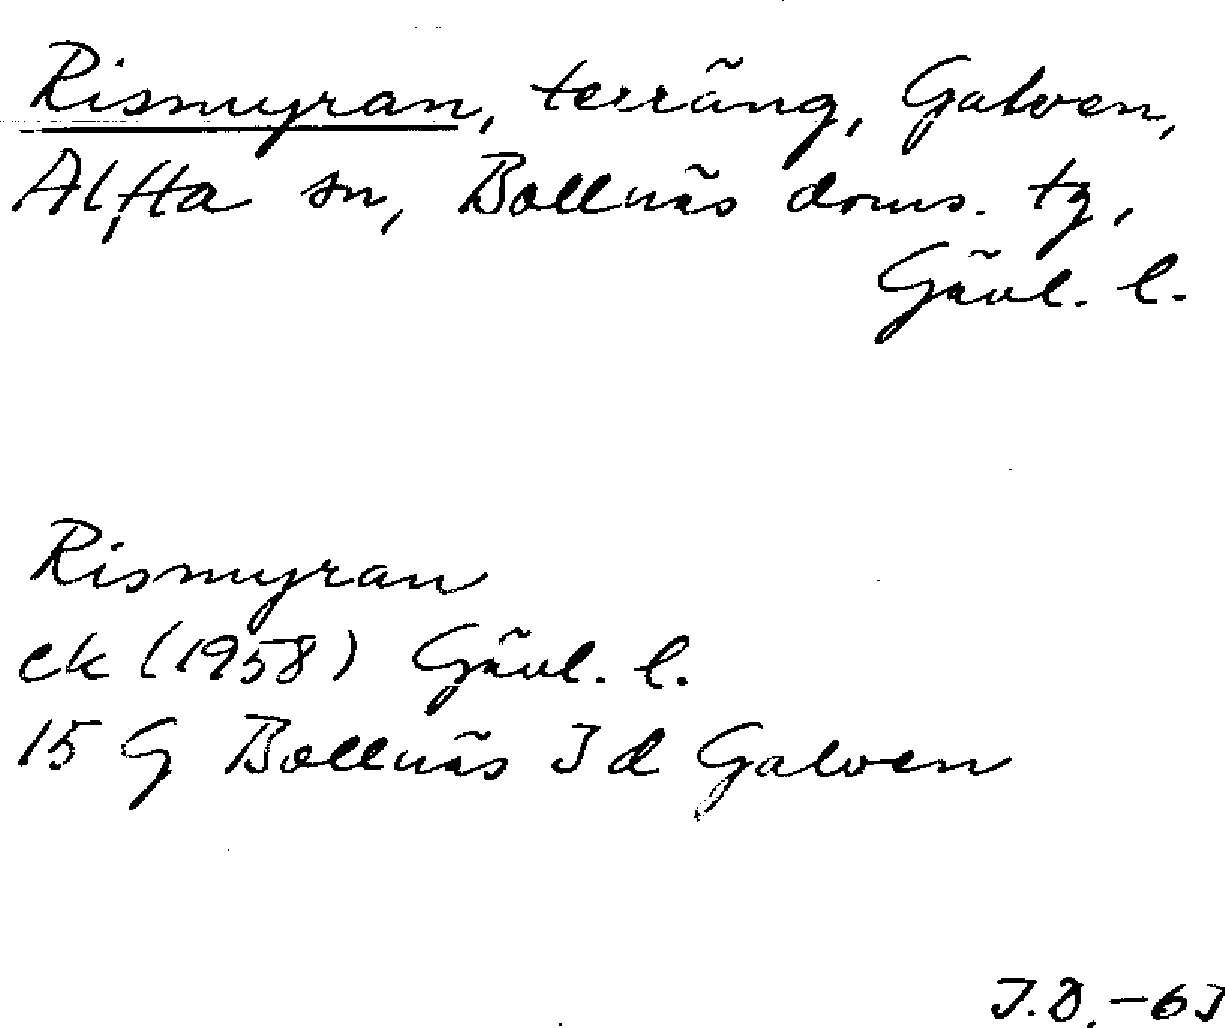 Rismyran, terräng, Galven,
Alfta sn, Bollnäs doms. tg,
Gävl. l.
Rismyran
ek (1958) Gävl. l.
15 G Bollnäs I d Galven